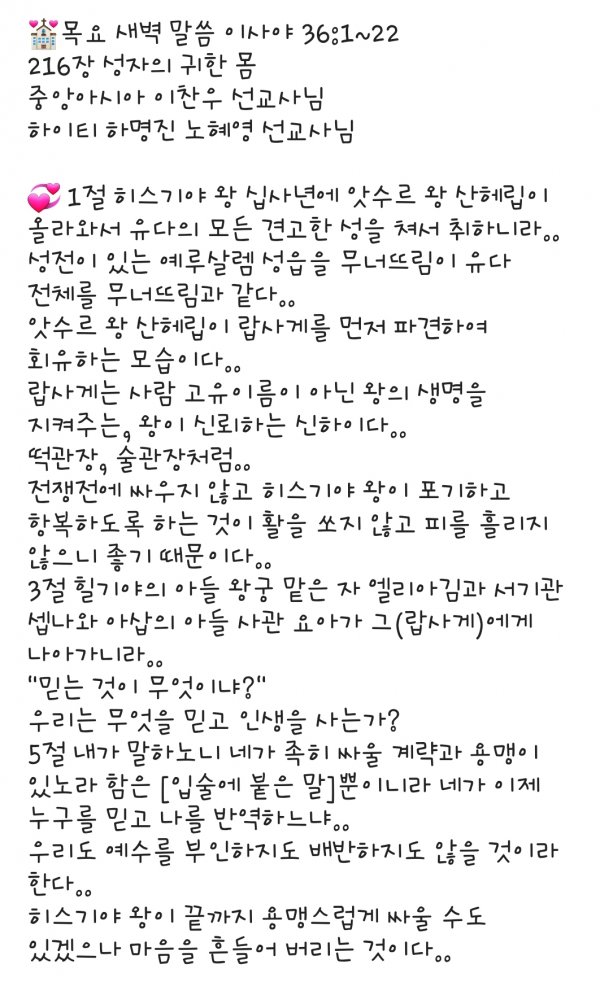 💒목요 새벽 말씀 이사야 36:1~22
216장 성자의 귀한 몸
중앙아시아 이찬우 선교사님
하이티 하명진 노혜영 선교사님
💞1절 히스기야 왕 십사년에 앗수르 왕 산헤립이
올라와서 유다의 모든 견고한 성을 쳐서 취하니라..
성전이 있는 예루살렘 성읍을 무너뜨림이 유다
전체를 무너뜨림과 같다..
앗수르 왕 산헤립이 랍사게를 먼저 파견하여
회유하는 모습이다..
랍사게는 사람 고유이름이 아닌 왕의 생명을
지켜주는, 왕이 신뢰하는 신하이다..
떡관장, 술관장처럼..
전쟁전에 싸우지 않고 히스기야 왕이 포기하고
항복하도록 하는 것이 활을 쏘지 않고 피를 흘리지
않으니 좋기 때문이다..
3절 힐기야의 아들 왕궁 맡은 자 엘리아김과 서기관
셉나와 아삽의 아들 사관 요아가 그(랍사게)에게
나아가니라..
"믿는 것이 무엇이냐?"
우리는 무엇을 믿고 인생을 사는가?
5절 내가 말하노니 네가 족히 싸울 계략과 용맹이
있노라 함은 [입술에 붙은 말]뿐이니라 네가 이제
누구를 믿고 나를 반역하느냐..
우리도 예수를 부인하지도 배반하지도 않을 것이라
한다..
히스기야 왕이 끝까지 용맹스럽게 싸울 수도
있겠으나 마음을 흔들어 버리는 것이다..